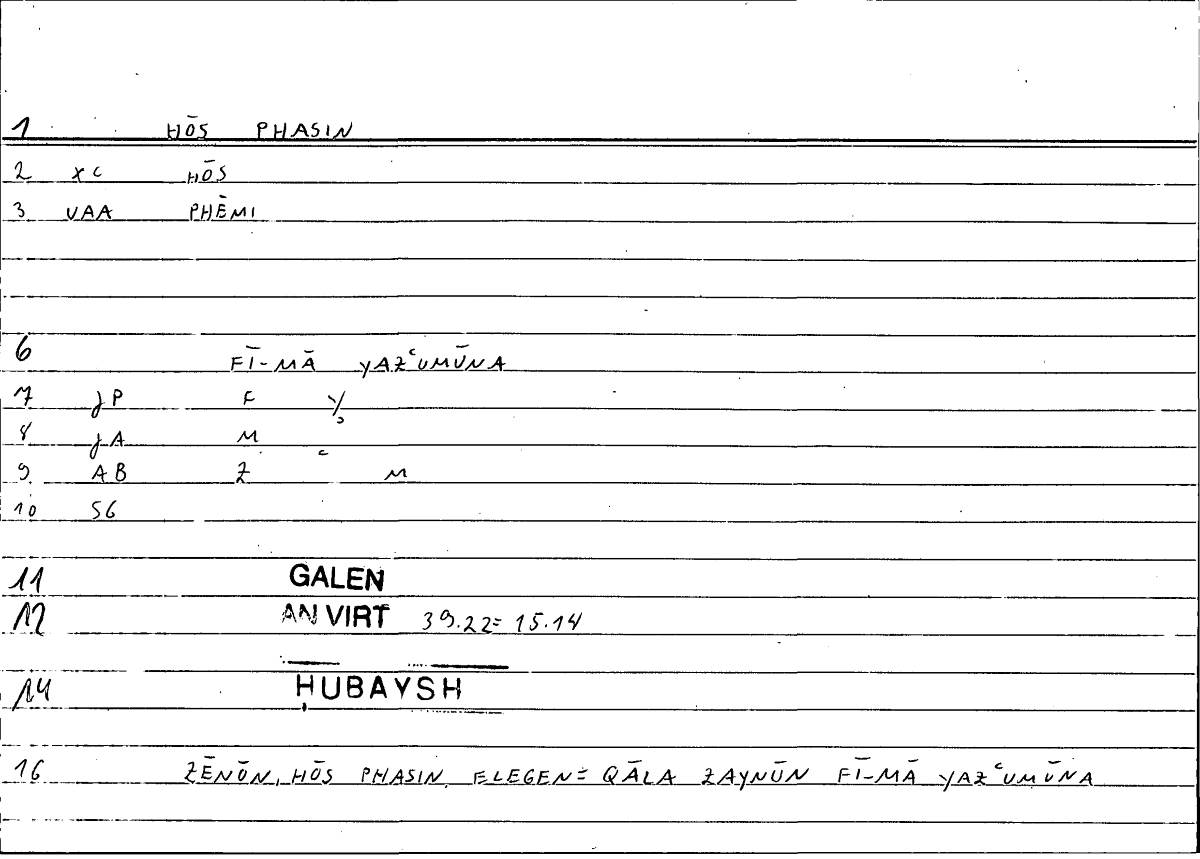 1 HŌS PHASIN
2 XC HŌS
3 VAA PHĒMI
6 FĪ-MĀ YAZʿUMŪNA
7 JP F Y
8 JA M
9 AB Z ʿ M
10 SG
11 GALEN
12 AN VIRT 39.22= 15.14
14 ḤUBAYSH
16 ZĒNŌN, HŌS PHASIN, ELEGEN= QĀLA ZAYNŪN FĪ-MĀ YAZʿUMŪNA